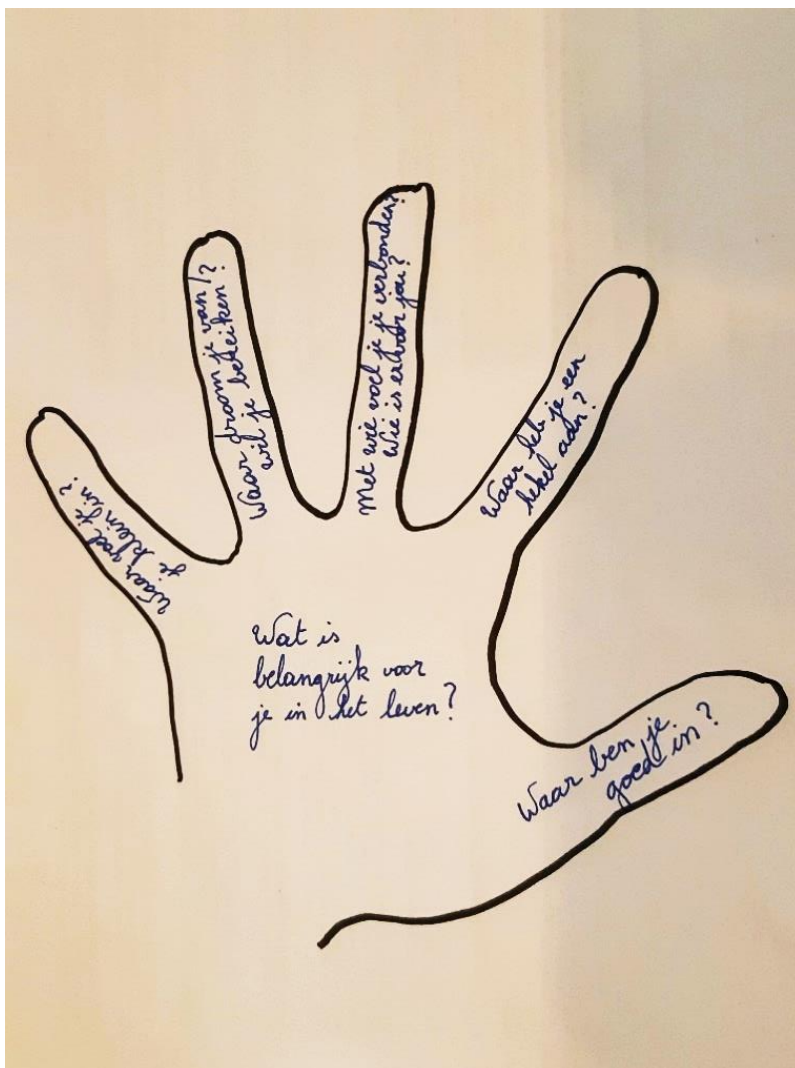 Waar voel je
je klein in?
Waar droom je van /?
wil je bereiken?
Met wie voel je je verbonden?
Wie is er voor jou?
Waar heb je een
hekel aan?
Wat is
belangrijk voor
je in het leven?
Waar ben je
goed in?